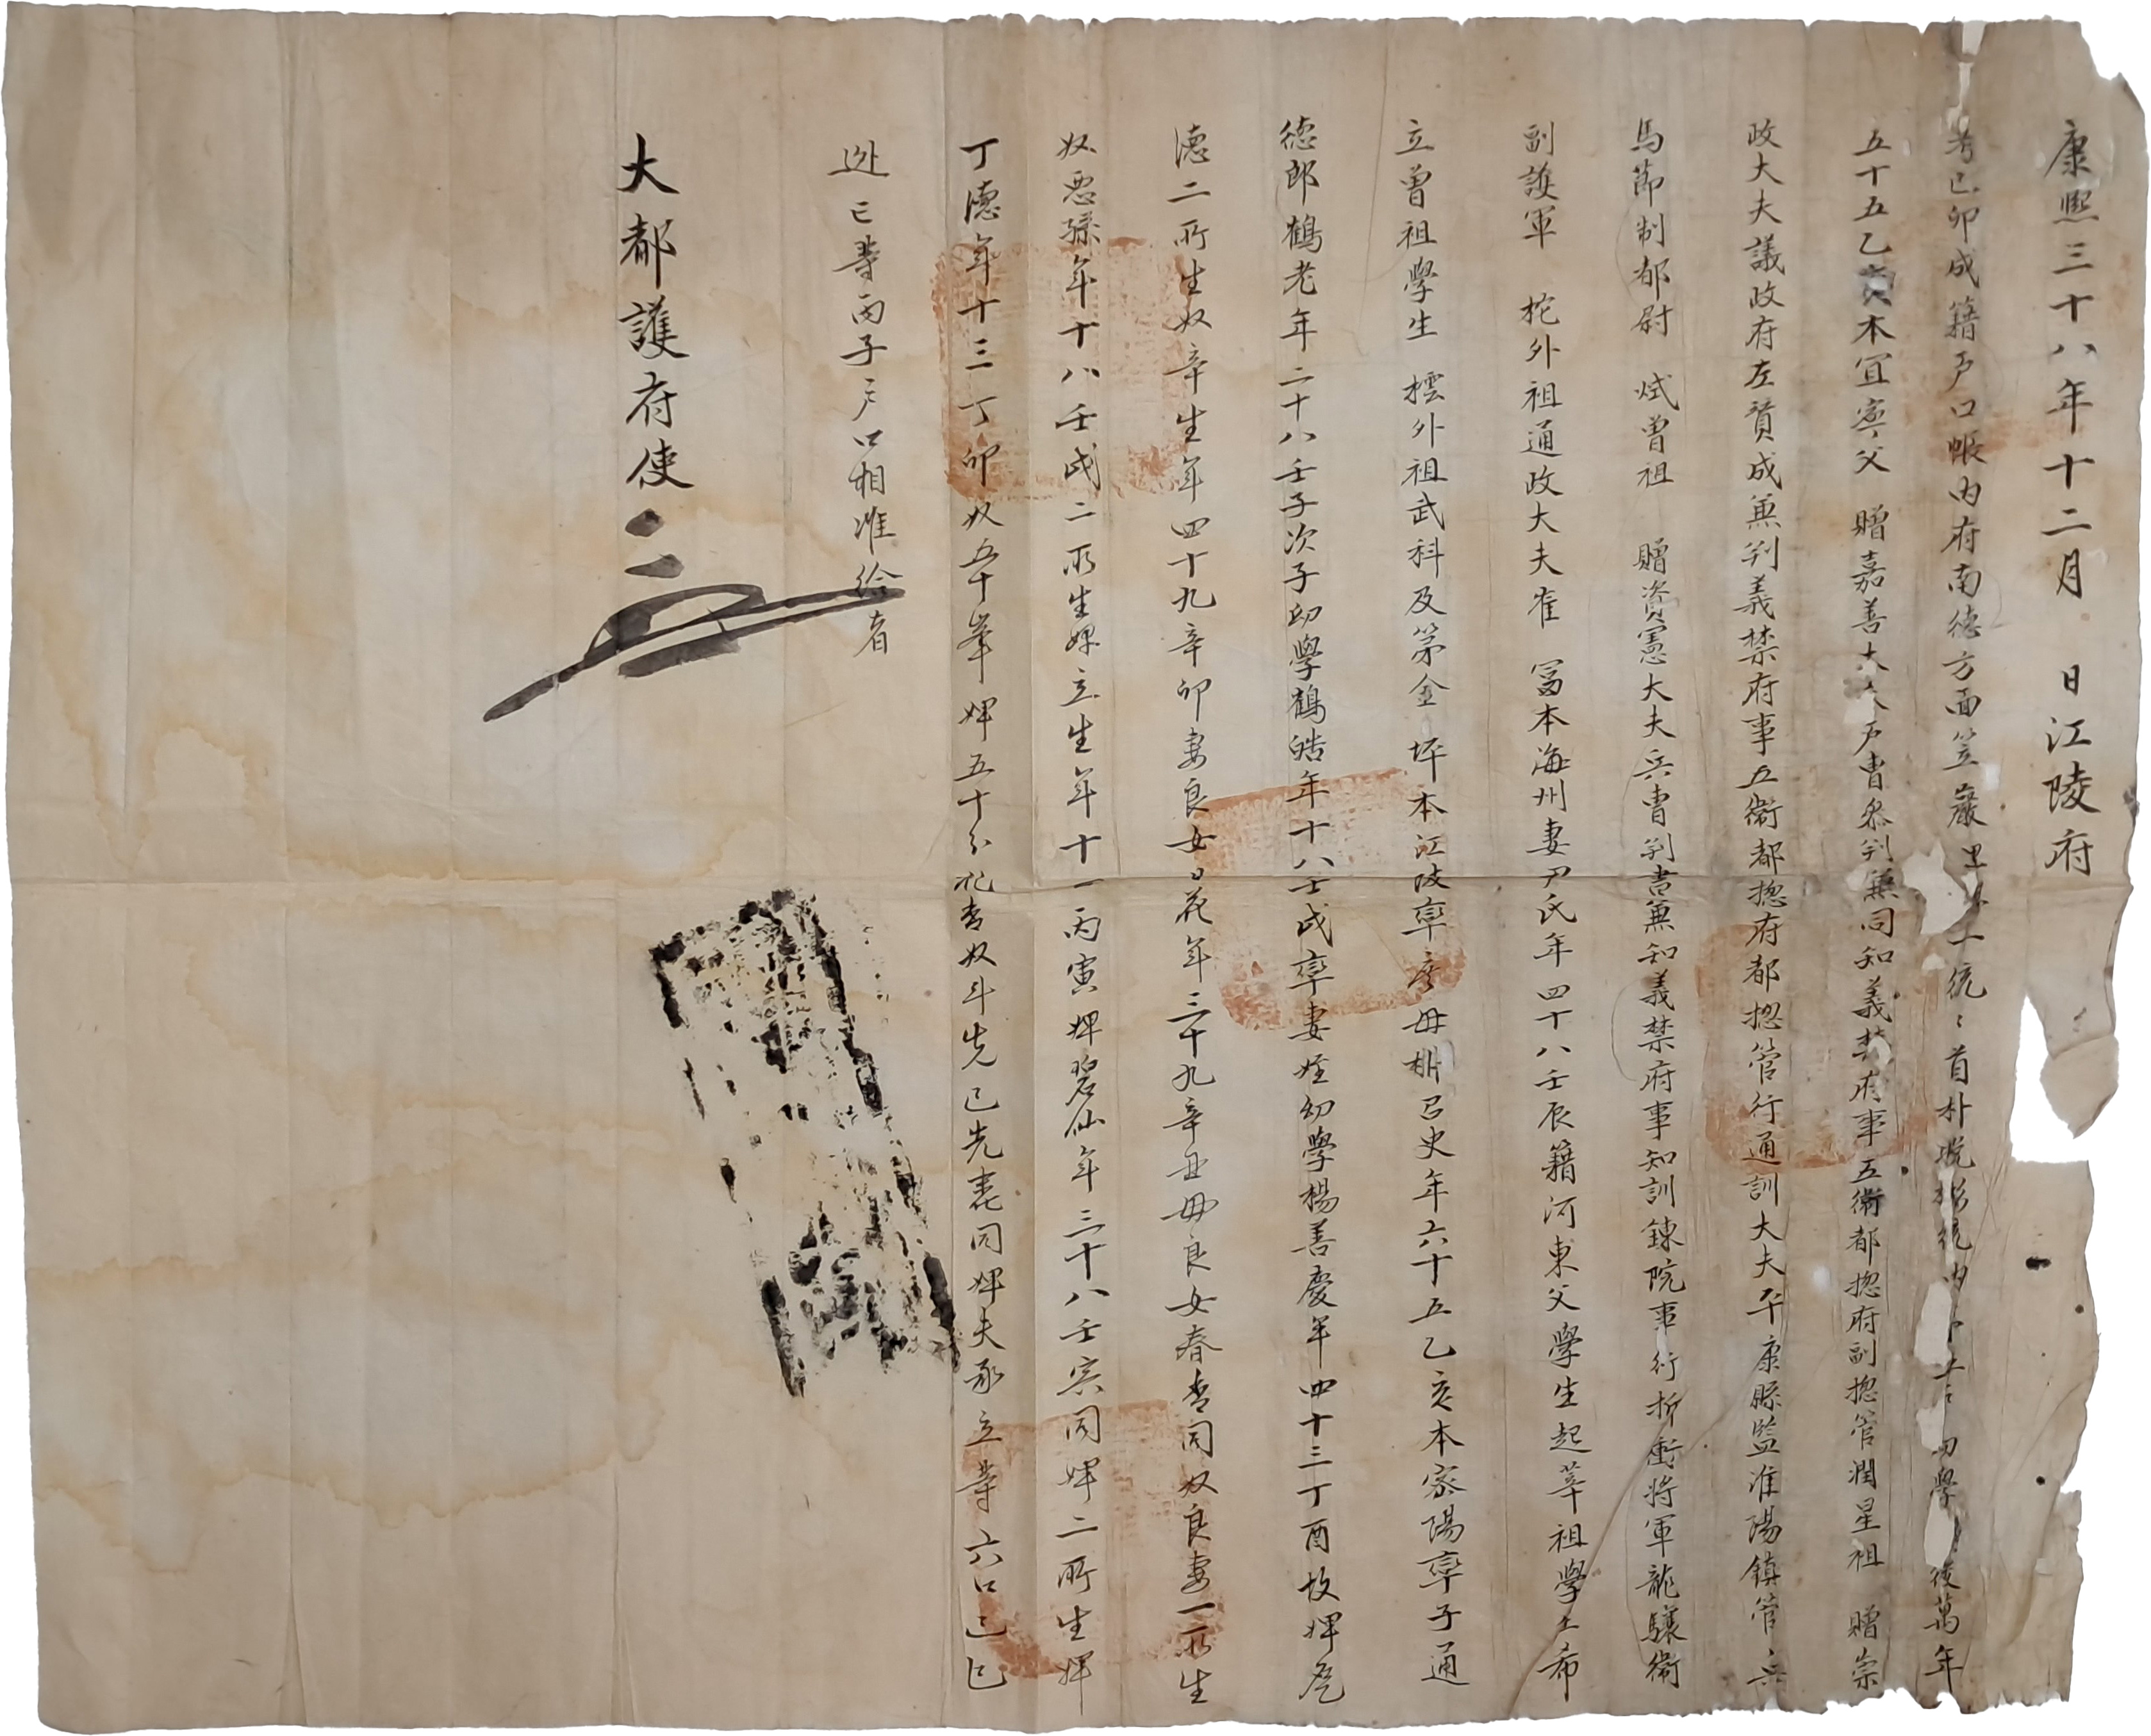 康熙三十八年十二月 日江陵府
考己卯成籍戶口帳內府南德方面笠巖里 統〻首朴 統內 幼學 後萬年
五十五乙亥本宜寧父 贈嘉善大夫戶曹參判兼同知義禁府事五衛都摠府副摠管潤星祖 贈崇
政大夫議政府左贊成兼判義禁府事五衛都摠府都摠管行通訓大夫平康縣監淮陽鎮管兵
馬節制都尉 烒曾祖 贈資憲大夫兵曹判書兼知義禁府事知訓鍊院事行折衝將軍龍驤衛
副護軍 枪外祖通政大夫崔 冨本海州妻尹氏年四十八壬辰籍河東父學生起莘祖學生希
立曾祖學生 橒外祖武科及第金 坪本江陵率 母 召史年六十五乙亥本密陽率子通
德郎鶴老年二十八壬子次子幼學鶴皓年十八壬戌率妻姪幼學楊善慶年四十三丁酉故婢
德二所生奴辛生年四十九辛卯妻良女日花年三十九辛丑母良女春香同奴良妻一所生
奴惡孫年十八壬戌二所生婢立生年十一丙寅婢碧仙年三十八壬寅同婢二所生婢
丁德年十三丁卯奴五十 婢五十 香奴斗先己先 同婢夫承立等六口 已
逃亡等丙子戶口相准給者
大都護府使